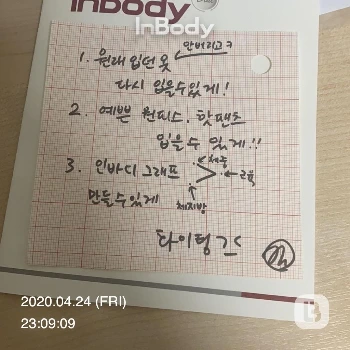 InBody
InBody
1. 원래 입던 옷 안버리고ㅋ
다시 입을수있게!
2. 예쁜 원피스. 핫팬츠
입을 수 있게!!
3. 인바디 그래프
체중
근육
체지방
만들수있게
다이어터
2020.04.24 (FRI)
23:09:09